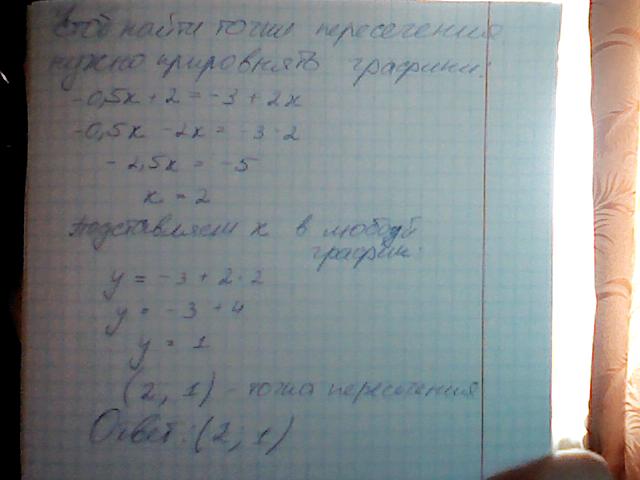 Чтоб найти точки пересечения
нужно прировнять графики:
-0,5x + 2 = -3 + 2x
-0,5x - 2x = -3 - 2
-2,5x = -5
x = 2
Подставляем x в любой
график:
y = -3 + 2·2
y = -3 + 4
y = 1
(2, 1) - точка пересечения
Ответ: (2; 1)